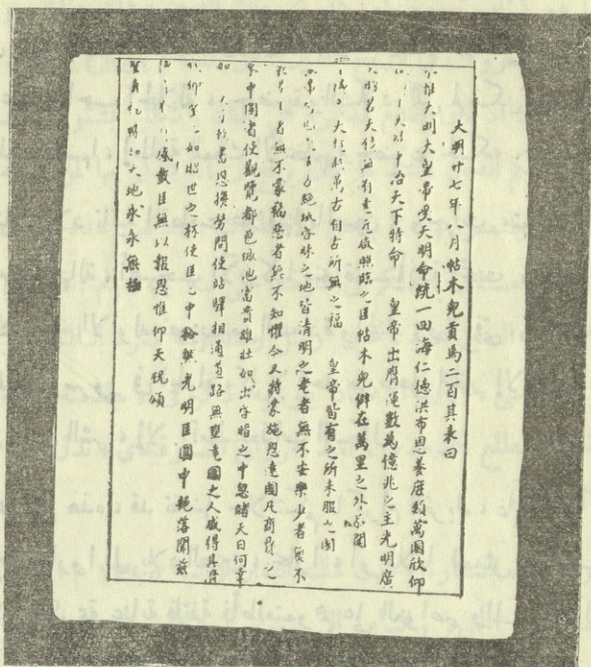 大明廿七年八月帖木兒貢馬二百其表曰
惟大明大皇帝受天明命統一四海仁德洪布恩養庶類萬國欣仰
治天下特命 皇帝出膺運數為億兆之主光明廣
若天鏡無有遠近咸照臨之臣帖木兒僻在萬里之外恭聞
大超越萬古自古所無之福 皇帝皆有之所未服之國
方絕域昏昧之地皆清明之老者無不安樂少者無不
者無不蒙福惡者無不知懼今又特蒙施恩遠國凡商賈之
來中國者使觀覽都邑城池富貴雄壯如出昏暗之中忽睹天日何幸
如 書恩撫勞問使站驛相通道路無壅遠國之人咸得其濟
仰聖心如照世之杯使臣心中豁然光明臣國中部落聞茲
感戴臣無以報恩惟仰天祝頌
聖壽福祿如天地永永無極